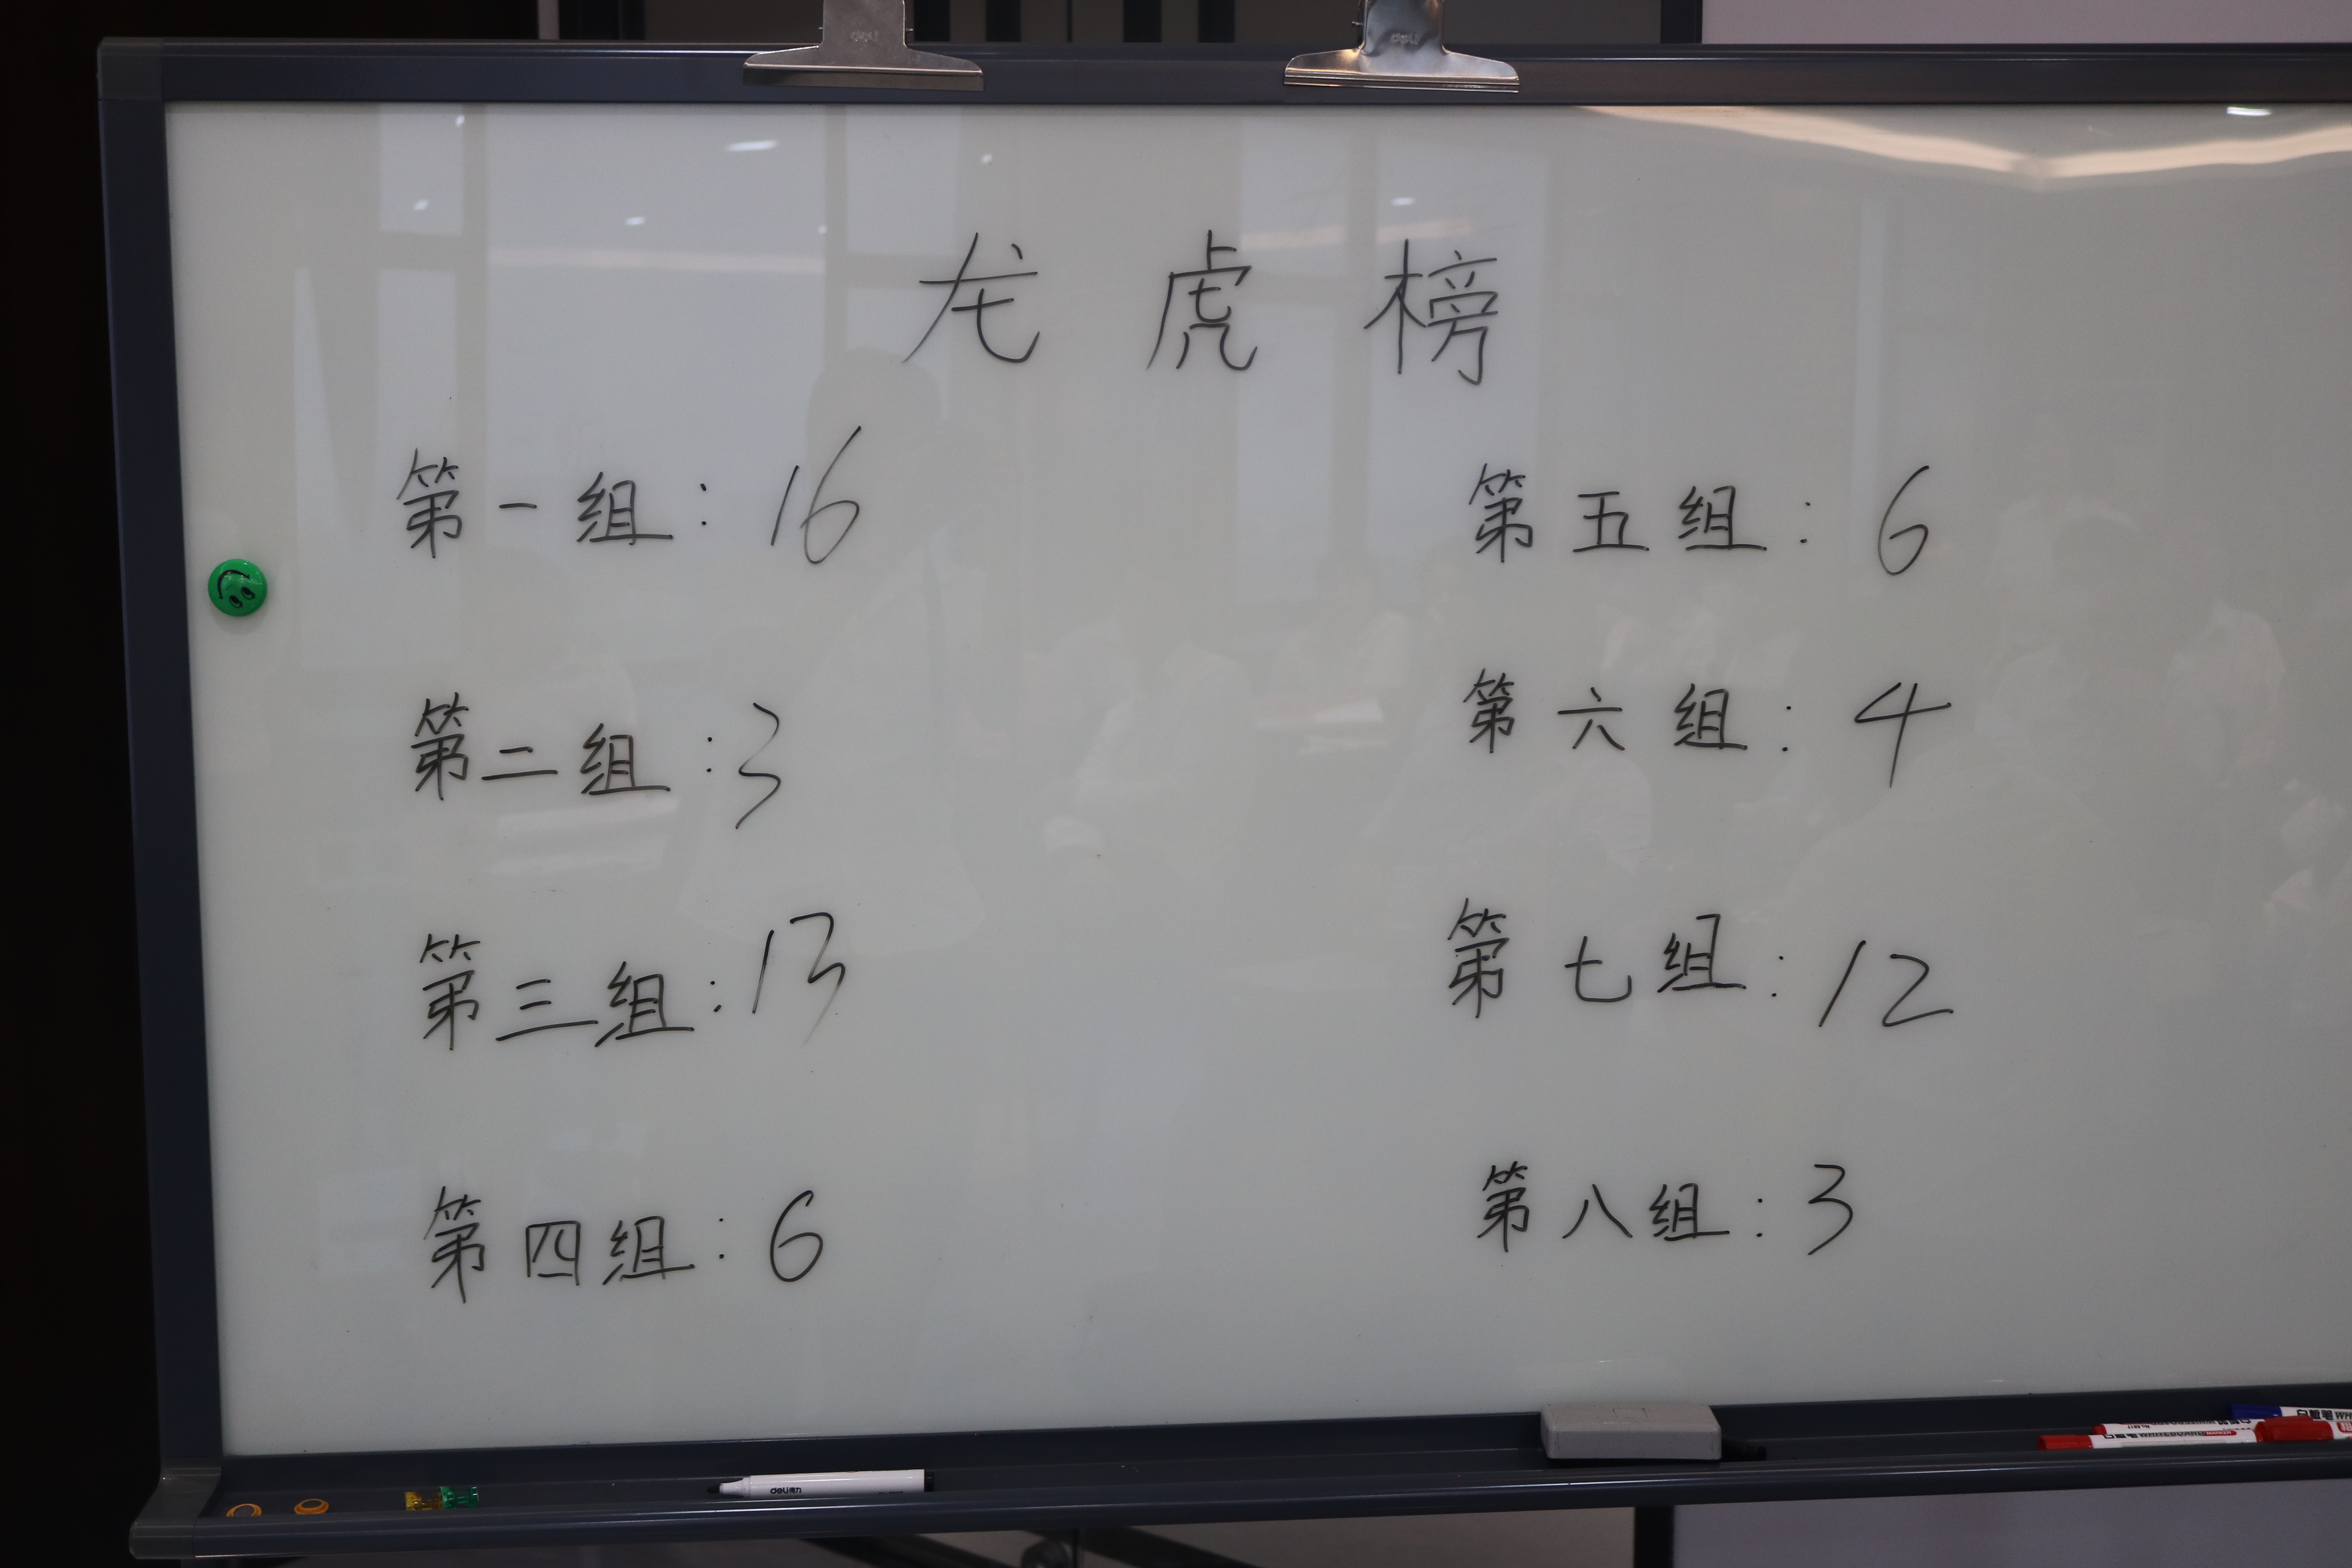 龙虎榜
第一组：16
第二组：3
第三组：13
第四组：6
第五组：6
第六组：4
第七组：12
第八组：3
deli得力